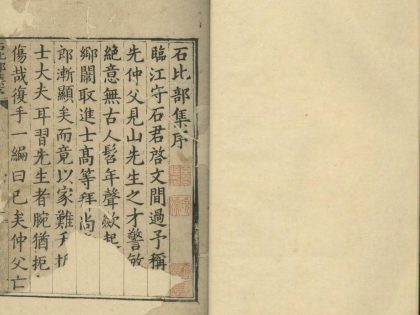 石比部集序
臨江守石君啓文間過予稱
先仲父見山先生之才警敏
絶意無古人髫年聲歘起
鄉闈取進士高等拜尚
郎漸顯矣而竟以家難
士大夫耳習先生者腕猶扼
傷哉復手一編曰已矣仲父亡